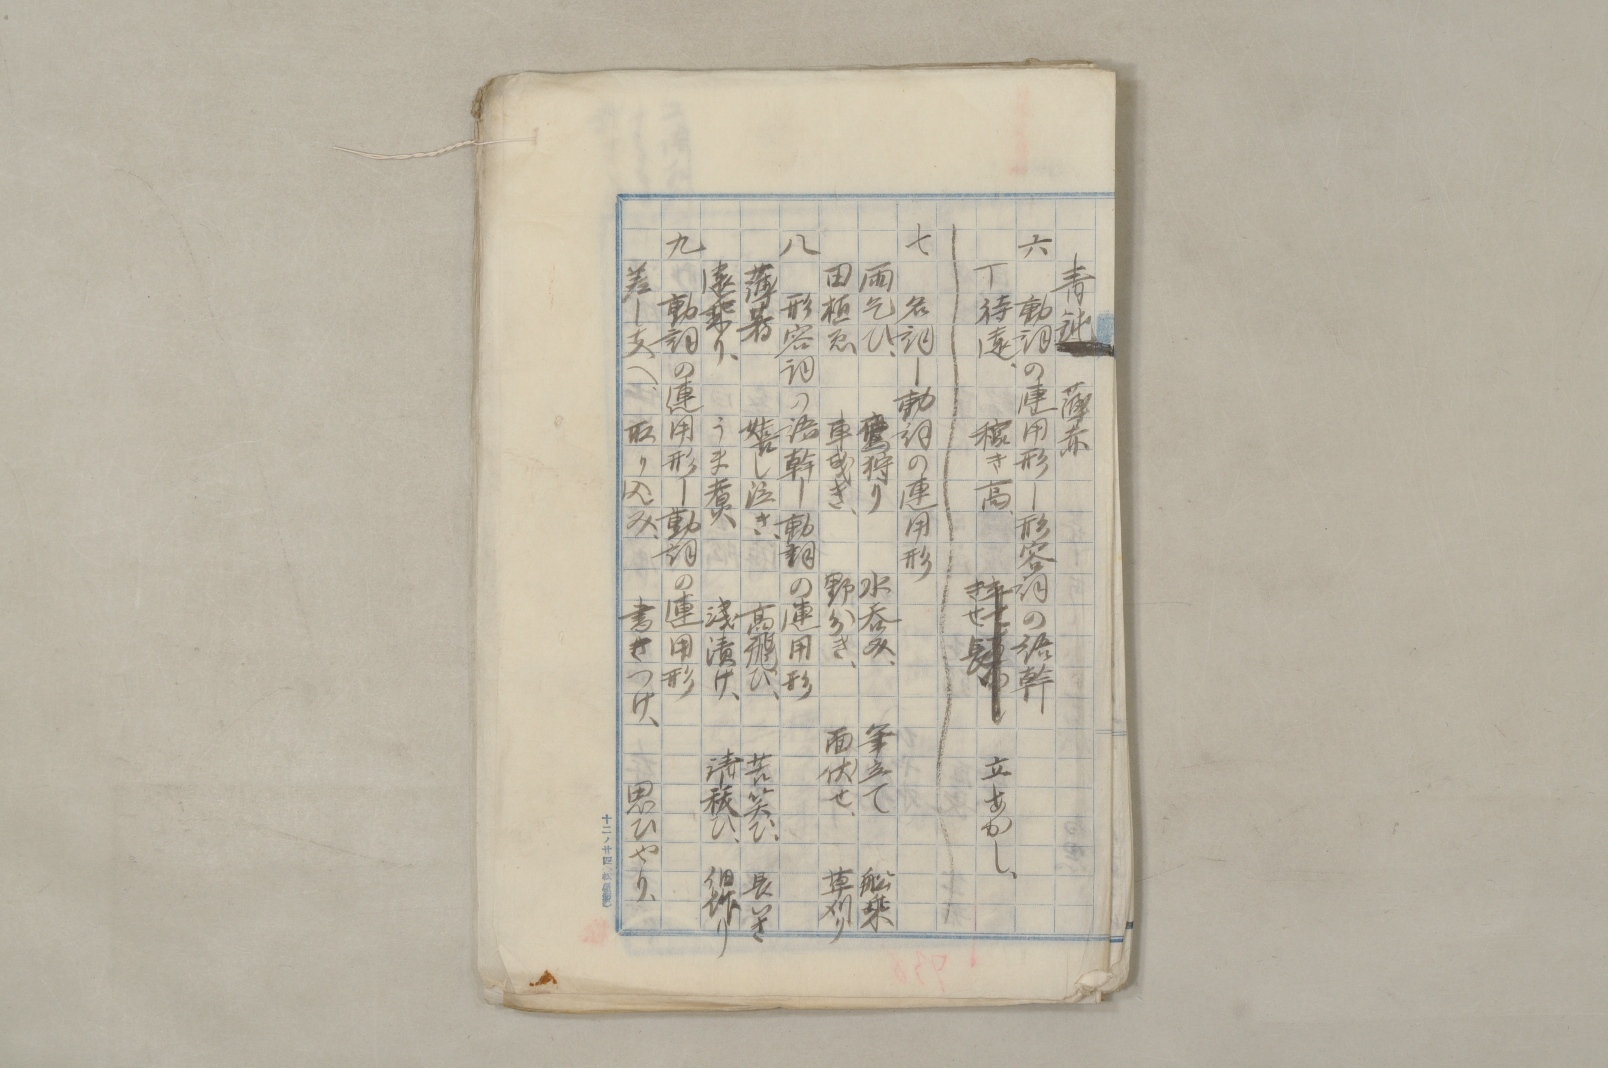 青鈍 薄赤
六 動詞の連用形ー形容詞の語幹
待遠、 稼き高、 きせ長 立あかし、
七 名詞ー動詞の連用形
雨乞ひ、 鷹狩り 水呑み、 筆立て 船乗
田植ゑ 車曳き、 野分き、 面伏せ、 草刈り
八 形容詞の語幹ー動詞の連用形
薄着 嬉し泣き、 高飛び、 苦笑ひ、 長いき
遠乗り、 うま煮、 浅漬け、 清祓ひ、
九 動詞の連用形ー動詞の連用形
差し支へ、 取り込み、 書きつけ、 思ひやり、